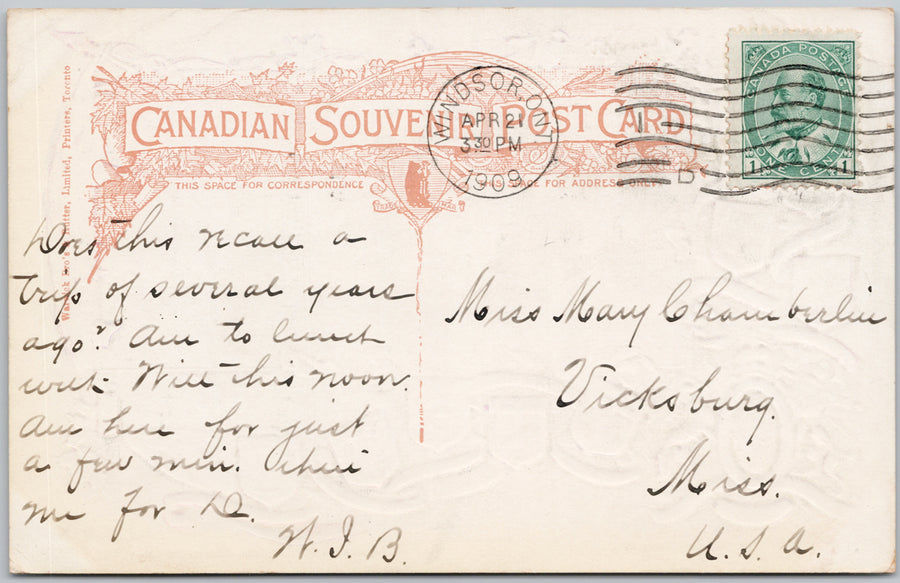 CANADIAN SOUVENIR POST CARD
THIS SPACE FOR CORRESPONDENCE
THIS SPACE FOR ADDRESS ONLY
WINDSOR, ONT.
APR 21
3 30 PM
1909
CANADA POSTAGE
1 ONE CENT 1
Limited, Printers, Toronto
Does this recall a
trip of several years
ago? Am to lunch
with Will this noon.
Am here for just
a few min.
me for D.
W. J. B.
Miss Mary Chamberlin
Vicksburg.
Miss.
U. S. A.